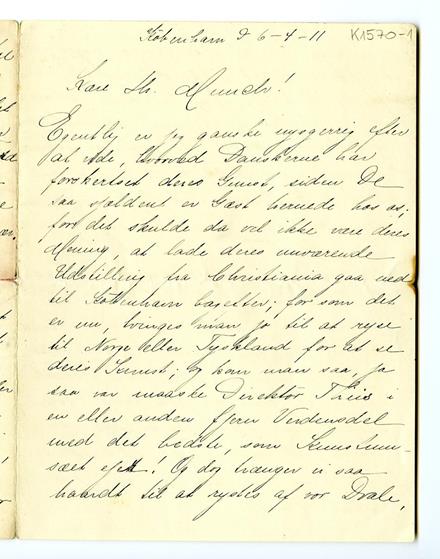 København d 6-4-11 K1570-1
Kære Hr. Munch!
Egentlig er jeg ganske nysgerrig efter
at vide, hvorved Danskerne har
forskertset deres Gunst, siden De
saa sjældent er Gæst hernede hos os;
for det skulde da vel ikke være deres
Mening, at lade deres nuværende
Udstilling fra Christiania gaa ned
til København bagefter; for som det
er nu, tvinges man jo til at rejse
til Norge eller Tyskland for at se
deres Kunst; og kom man saa, ja
saa var maaske Direktør Thiis i
en eller anden fjern Verdensdel
med det bedste, som Kunstmu-
sæet ejer! Og dog trænger vi saa
haardt til at rystes af vor Dvale,